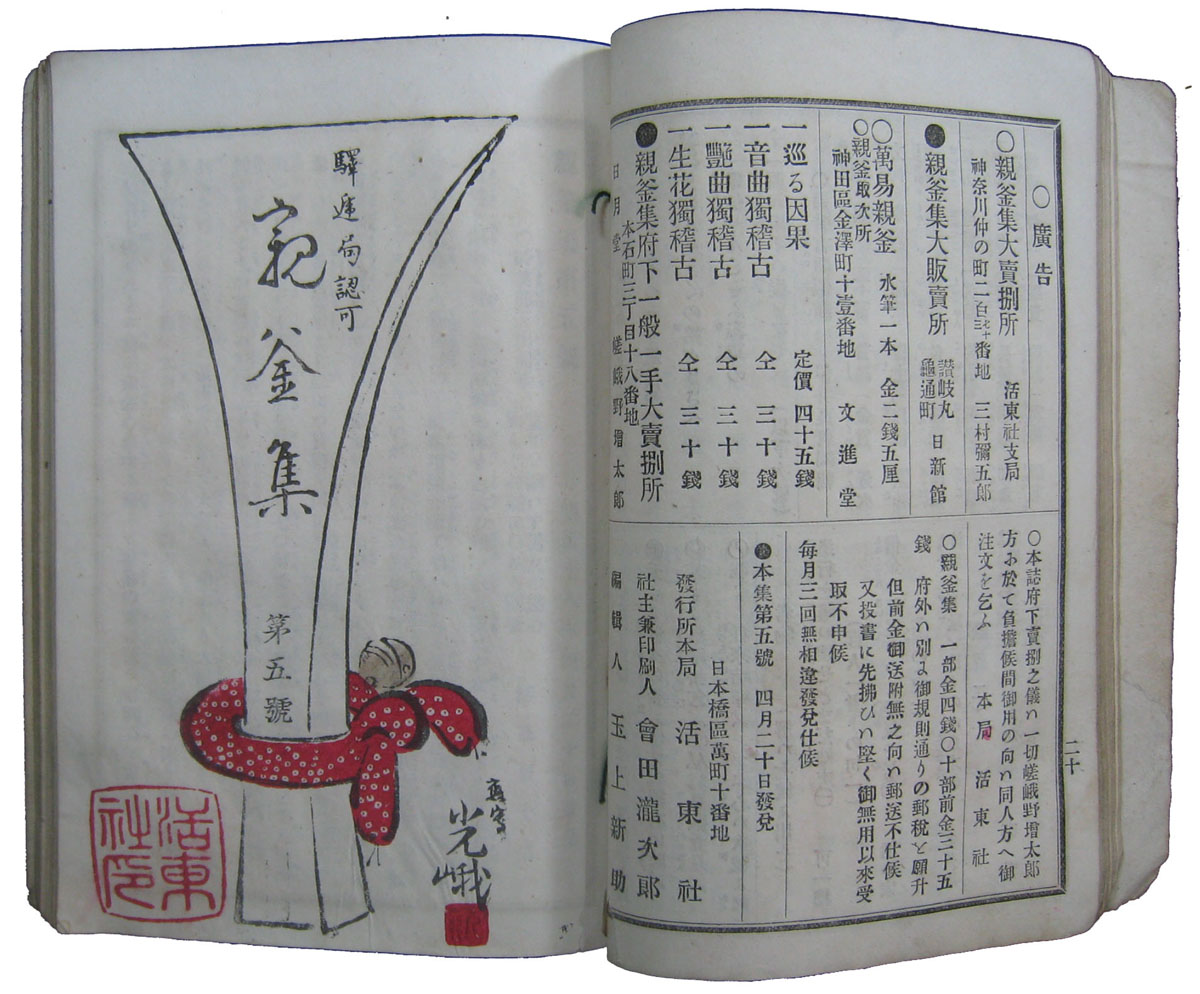 ○廣告
○親釜集大賣捌所 活東社支局
神奈川仲の町二百三十七番地 三村彌五郎
●親釜集大販賣所 讃岐丸龜通町 日新館
○萬易親釜 水筆一本 金二錢五厘
○親釜取次所
神田區金澤町十壹番地 文進堂
一巡る因果 定價 四十五錢
一音曲獨稽古 仝 三十錢
一艷曲獨稽古 仝 三十錢
一生花獨稽古 仝 三十錢
●親釜集府下一般一手大賣捌所
本石町三丁目十八番地
日月堂 嵯峨野增太郎
○本誌府下賣捌之儀ハ一切嵯峨野增太郎
方ニ於て負擔候間御用の向ハ同人方へ御
注文を乞ふ 本局 活東社
○親釜集 一部金四錢○十部前金三十五
錢 府外ハ別よ御規則通りの郵税と願升
但前金御送附無之向ハ郵送不仕候
又投書に先拂ひハ堅く御無用以來受
取不申候
每月三回無相違發兌仕候
●本集第五號 四月二十日發兌
日本橋區萬町十番地
發行所本局 活東社
社主兼印刷人 會田瀧次郎
編輯人 玉上新助
二十
驛遞局認可
親釜集
第五號
光峨
活東社印